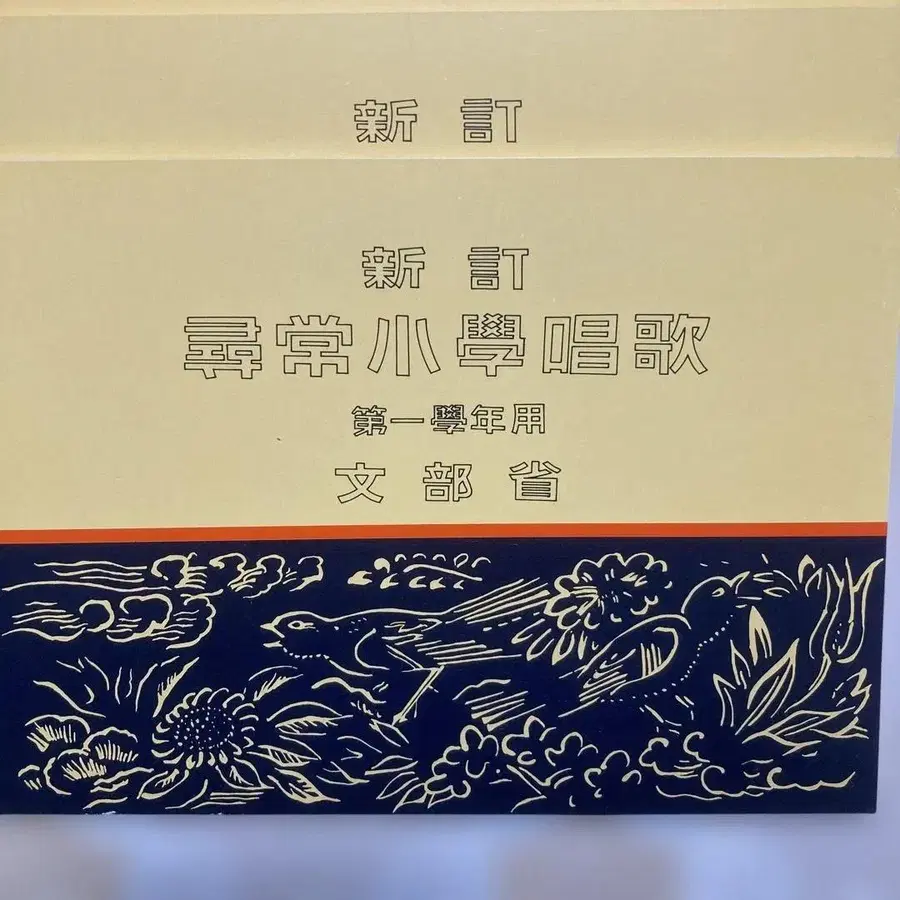 新訂
新訂
尋常小學唱歌
第一學年用
文部省